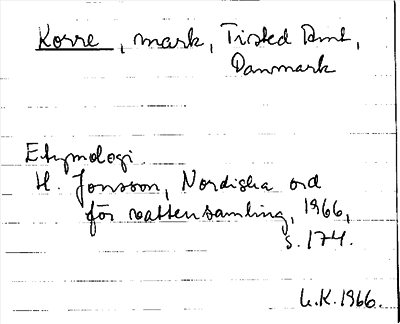 Korre, mark, Tisted Amt,
Danmark
Etymologi
H. Jonsson, Nordiska ord
för vattensamling, 1966,
s. 174.
L.K. 1966.